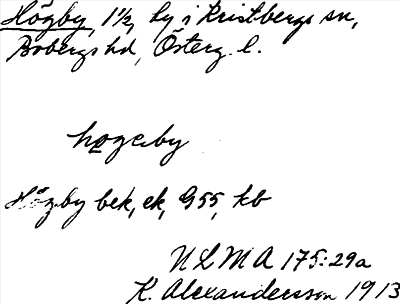 Högby, 1½, by i Kristbergs sn,
Bobergs hd, Österg. l.
høgeby
Högby bek, ek, G55, kb
ULMA 175:29a
K. Alexandersson 1913